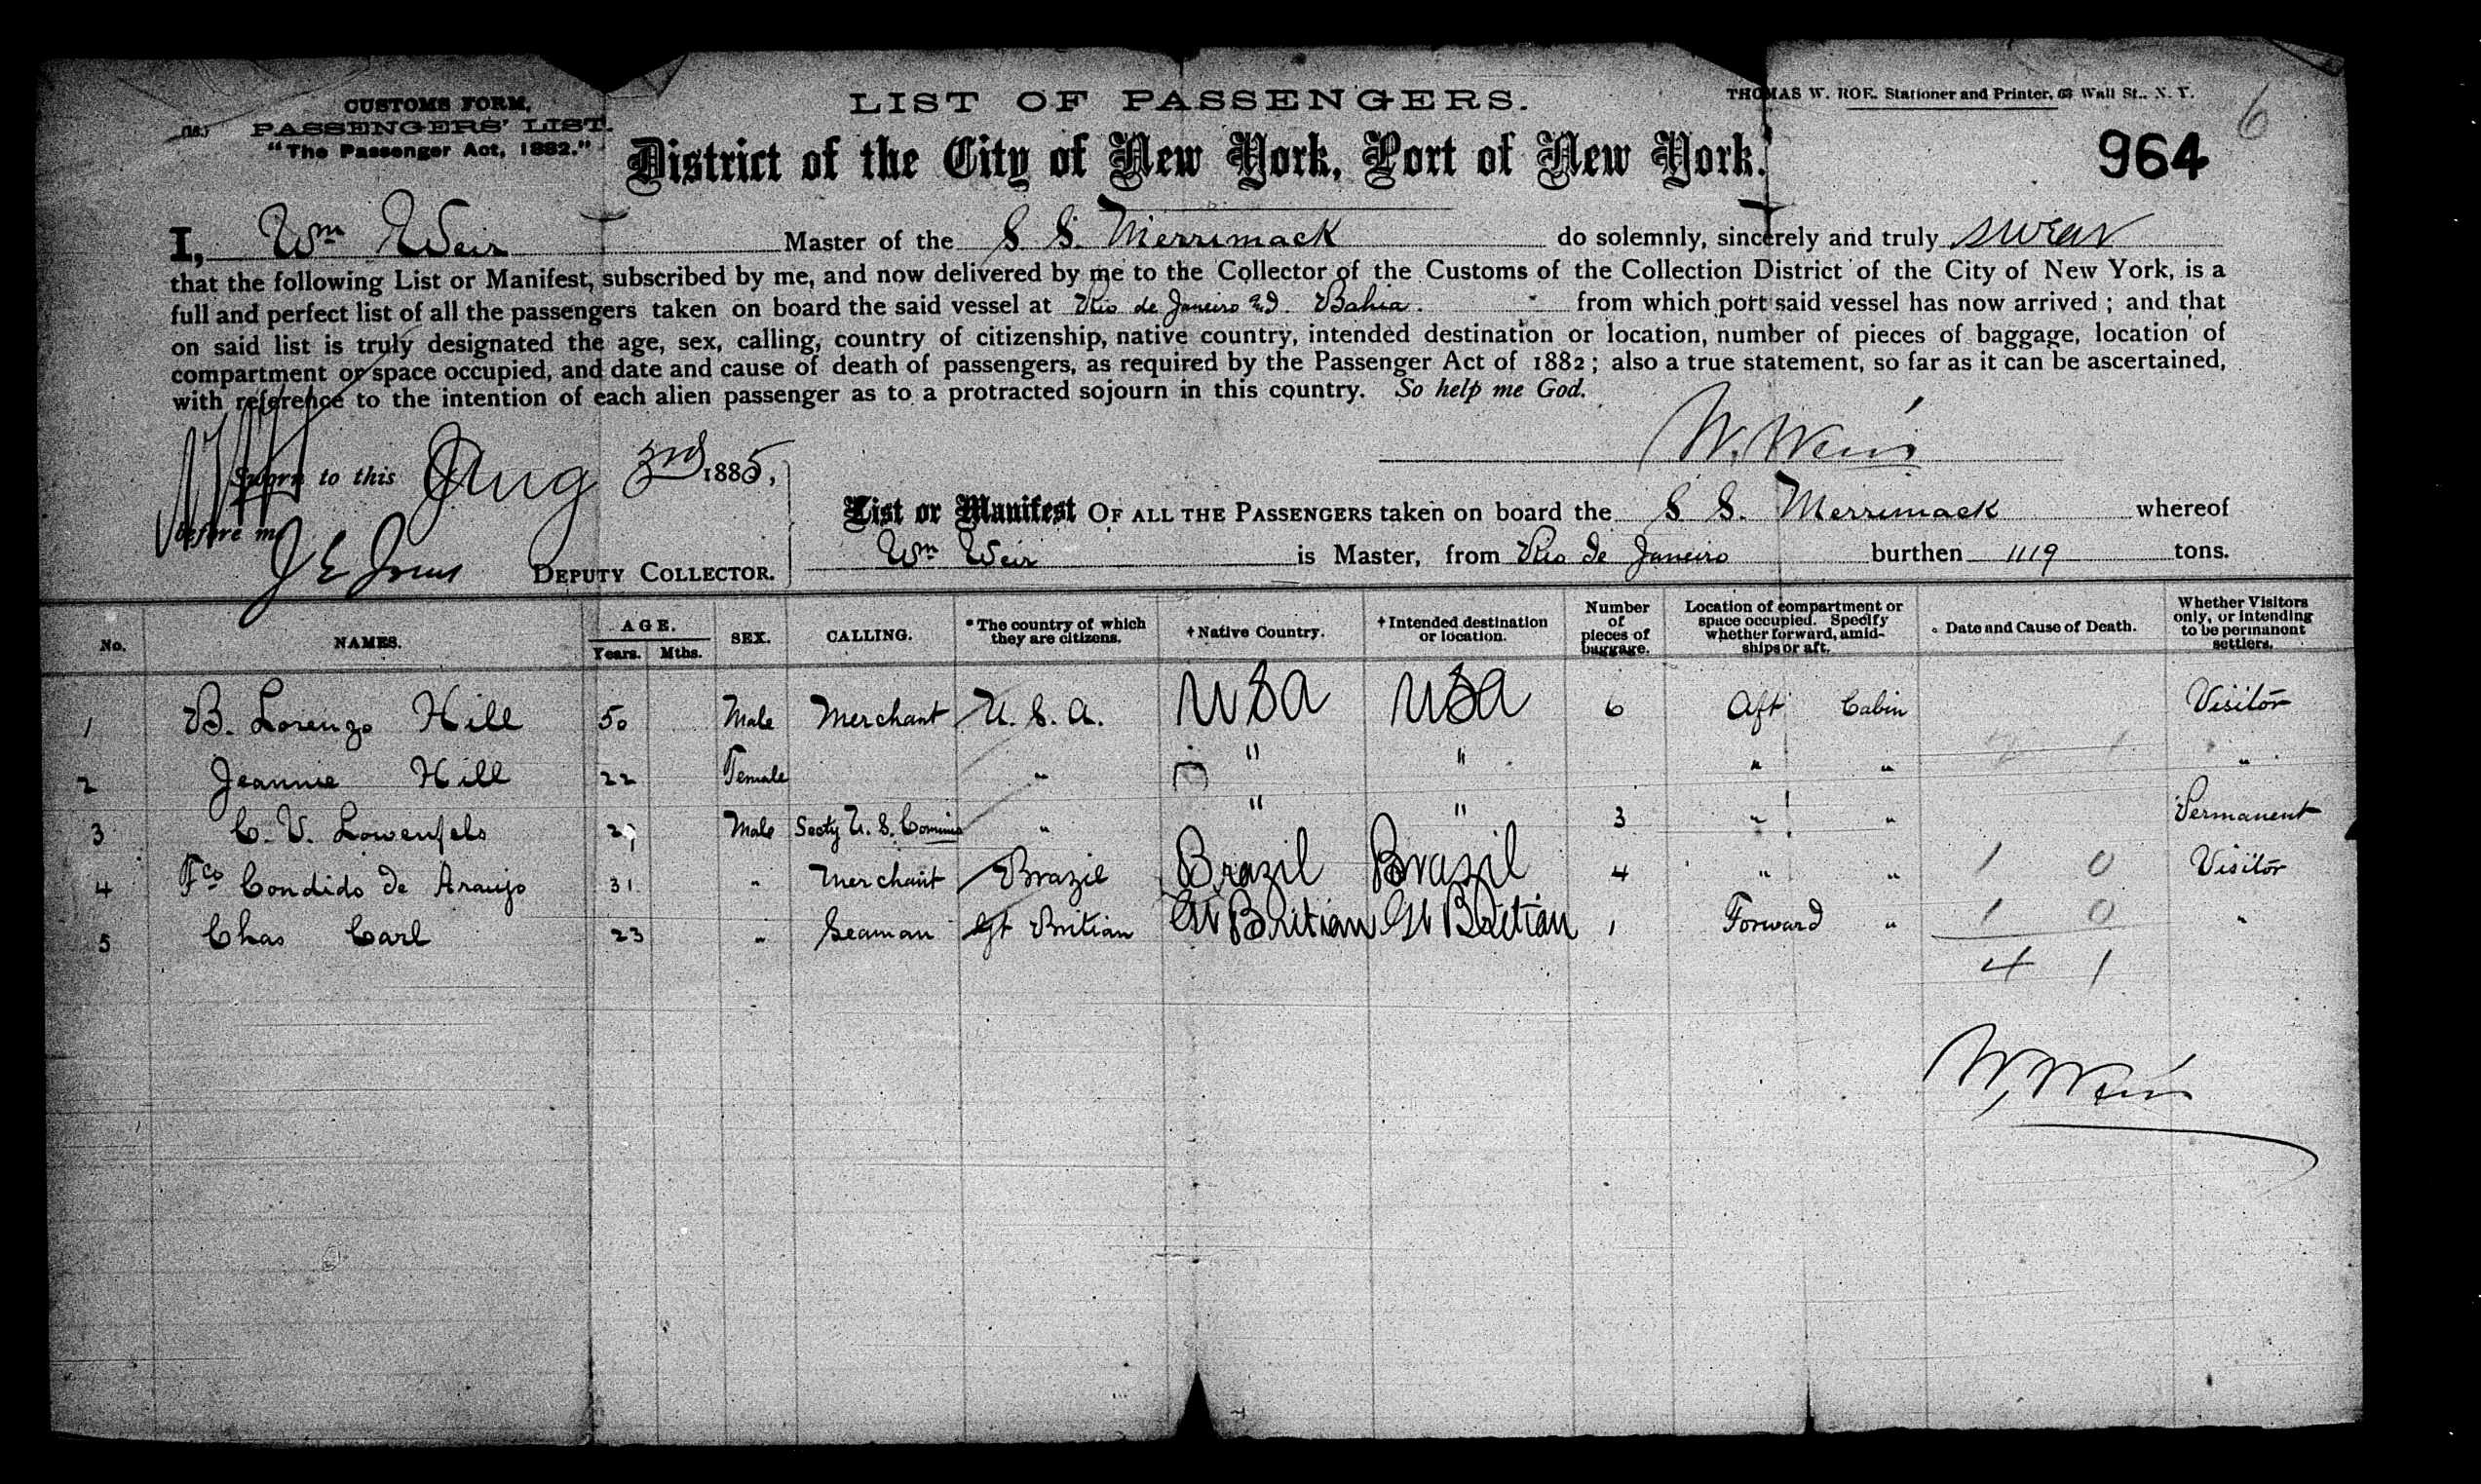 CUSTOMS FORM,
PASSENGERS' LIST.
"The Passenger Act, 1882."
LIST OF PASSENGERS.
THOMAS W. ROE. Stationer and Printer, 63 Wall St., N. Y.
6
964
District of the City of New York, Port of New York.
I, Wm Weir Master of the S. S. Merrimack do solemnly, sincerely and truly swear
that the following List or Manifest, subscribed by me, and now delivered by me to the Collector of the Customs of the Collection District of the City of New York, is a
full and perfect list of all the passengers taken on board the said vessel at Rio de Janeiro and Bahia. from which port said vessel has now arrived; and that
on said list is truly designated the age, sex, calling, country of citizenship, native country, intended destination or location, number of pieces of baggage, location of
compartment or space occupied, and date and cause of death of passengers, as required by the Passenger Act of 1882; also a true statement, so far as it can be ascertained,
with reference to the intention of each alien passenger as to a protracted sojourn in this country. So help me God.
W. Weir
Sworn to this Aug 3rd 1885,
before me
J E Jones DEPUTY COLLECTOR.
List or Manifest OF ALL THE PASSENGERS taken on board the S S. Merrimack whereof
Wm Weir is Master, from Rio de Janeiro burthen 1119 tons.
No. NAMES. AGE. Years. Mths. SEX. CALLING. *The country of which they are citizens. †Native Country. †Intended destination or location. Number of pieces of baggage. Location of compartment or space occupied. Specify whether forward, amidships or aft. Date and Cause of Death. Whether Visitors only, or intending to be permanent settlers.
1 B. Lorenzo Hill 50 Male Merchant U. S. A. USA USA 6 Aft Cabin Visitor
2 Jeannie Hill 22 Female " " " " " 2 1 "
3 C. V. Lowenfels 29 Male Secty U. S. Commis " " " 3 " " Permanent
4 Fco Condido de Araujo 31 " Merchant Brazil Brazil Brazil 4 " " 1 0 Visitor
5 Chas Carl 23 " Seaman Gt Britian Gt Britian Gt Britian 1 Forward " 1 0 "
4 1
W. Weir